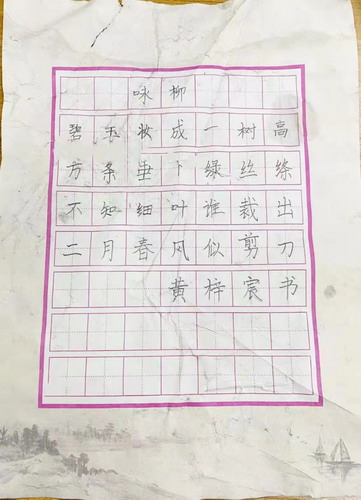 咏柳
碧玉妆成一树高
万条垂下绿丝绦
不知细叶谁裁出
二月春风似剪刀
黄梓宸书